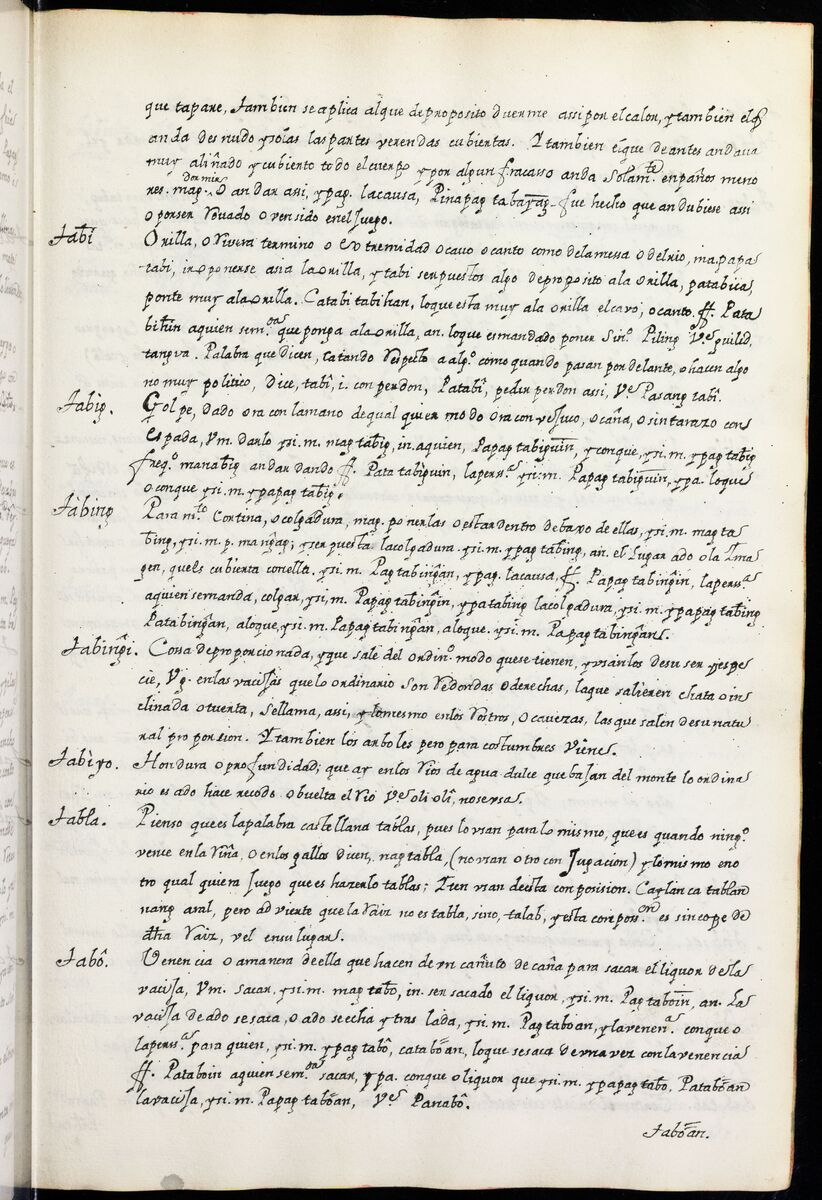 que tapare, tambien se aplica alque deproposito duerme assi por el calor, y tambien el q̃
anda desnudo y solas las partes verendas cubiertas. Y tambien el que de antes andaua
muy aliñado y cubierto todo el cuerpo y por algun fracasso anda solam.te en paños meno
res. mag. dormir O andar assi, ypag. la causa, Pinapag tabayag fue hecho que andubiese assi
o por ser Rouado o vensido enel Juego.
Tabi Orilla, o Rivera termino o extremidad o cavo o canto como de la messa o del rio, ma, papa
tabi, ir o ponerse asia la orilla, y tabi ser puestos algo de proposito ala orilla, patabica,
ponte muy ala orilla. Catabi tabihan, loque esta muy ala orilla el cavo, o canto. ff. Pata
bihin aquien sem.da que ponga ala orilla, an. loque es mandado poner Sin.o Piling Ve guilid,
tangva. Palabra que dicen, catando respecto a alg.o como quando pasan por delante, o hacen algo
no muy politico, Dice, tabî, i. con perdon, Patabî, pedir perdon assi, Ve Pasang tabî.
Tabig. Golpe, dado ora con la mano de qual quier modo ora con vejuco, o caña, o sintarazo con
espada, Vm. darlo ysi. m. mag tabig, in. aquien, Papag tabiguin, y conque, ysi. m. ypag tabig
freq.o manabig andar dando ff. Pata tabiguin, la perss.a ysi. m. Papag tabiguin, ypa. loque
o conque ysi. m. ypapag tabig.
Tàbing Param.to Cortina, o colgadura, mag. ponerlas o estar dentro debaxo de ellas, ysi. m. mag ta
bing, ysi. m. p. mangag; yser puesta la colgadura ysi. m. ypag tabing, an. el lugar ado o la Ima
gen, que es cubierta con ella. ysi. m. Pag tabingan, ypag. la causa, ff. Papag tabingin, la perss.a
aquien se manda, colgar, ysi. m. Papag tabingin, y patabing la colgadura, ysi. m. ypapag tabing
Patabingan, aloque, ysi. m. Papag tabingan, aloque. ysi. m. Papag tabingans.
Tabingi. Cossa deproporcionada, y que sale del ordin.o modo que se tienen, y vsan los de su ser y espe
cie, Vg. en las vacijas que lo ordinario son redondas o derechas, la que salieren chata o in
clinada o tuerta, se llama, assi, y lo mesmo en los rostros, o cavezas, las que salen de su natu
ral proporsion. Y tambien los arboles pero para costumbres Viene.
Tabiyo. Hondura o profundidad; que ay en los Rios de agua dulce que bajan del monte lo ordina
rio es ado hace recodo o buelta el Rio Ve oli olì, no se vsa.
Tabla. Pienso que es la palabra castellana tablas, pues lo vsan para lo mismo, que es quando ning.o
vence en la Riña, o en los gallos dicen, nag tabla, (no vsan otro conJugacion) y lo mismo en o
tro qual quiera Juego que es hazerlo tablas; Iten vsan de esta conposision. Caylan ca tablan
nang aral, pero ad vierte que la Raiz no es tabla, sino, talab, y esta conposs.on es sincope de
dha Raiz, vel en su lugar.
Tabô. Venencia o a manera de ella que hacen de vn cañuto de caña para sacar el liquor de la
vacija, Vm. sacar, ysi. m. mag tabo, in. ser sacado el liquor, ysi. m. Pag taboin, an. La
vacija de ado se saca, o ado se echa y tras lada, ysi. m. Pag taboan, y la venen.a conque o
la perss.a para quien, ysi. m. ypag tabô, cataboan, loque se saca de vna vez con la venencia
ff. Pataboin aquien sem.da sacar, ypa. conque o liquor que ysi. m. ypapag tabo, Pataboan
la vacija, ysi. m. Papag taboan, Ve Panabô.
Taboan.